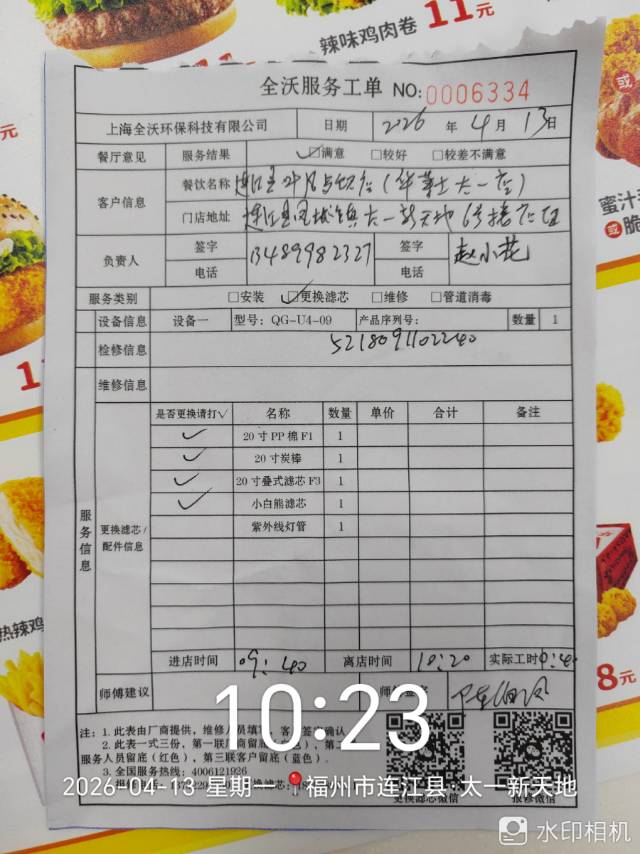 辣味鸡肉卷 11元
全沃服务工单 NO:0006334
上海全沃环保科技有限公司 日期 2026 年 4 月 13 日
餐厅意见 服务结果 ☑满意 □较好 □较差不满意
客户信息 餐饮名称 连江县 (华莱士太一店)
门店地址 连江县凤城镇太一新天地 6号楼
负责人 签字 13489982327 签字 赵小花
电话 电话
服务类别 □安装 ☑更换滤芯 □维修 □管道消毒
设备信息 设备一 型号: QG-U4-09 产品序列号: 数量 1
检修信息 5218091102240
维修信息
是否更换请打√ 名称 数量 单价 合计 备注
✓ 20 寸 PP 棉 F1 1
✓ 20 寸炭棒 1
✓ 20 寸叠式滤芯 F3 1
✓ 小白熊滤芯 1
紫外线灯管 1
服务信息
更换滤芯/配件信息
进店时间 09:40 离店时间 10:20 实际工时 0:40
师傅建议
注: 1. 此表由厂商提供, 维修人员填写, 客户签字确认
2. 此表一式三份, 第一联厂商留底
服务人员留底 (红色), 第三联客户留底 (蓝色).
3. 全国服务热线: 4006121926
更换滤芯微信 报修微信
10:23
2026-04-13 星期一 福州市连江县·太一新天地
水印相机
蜜汁
或脆
热辣鸡
8元